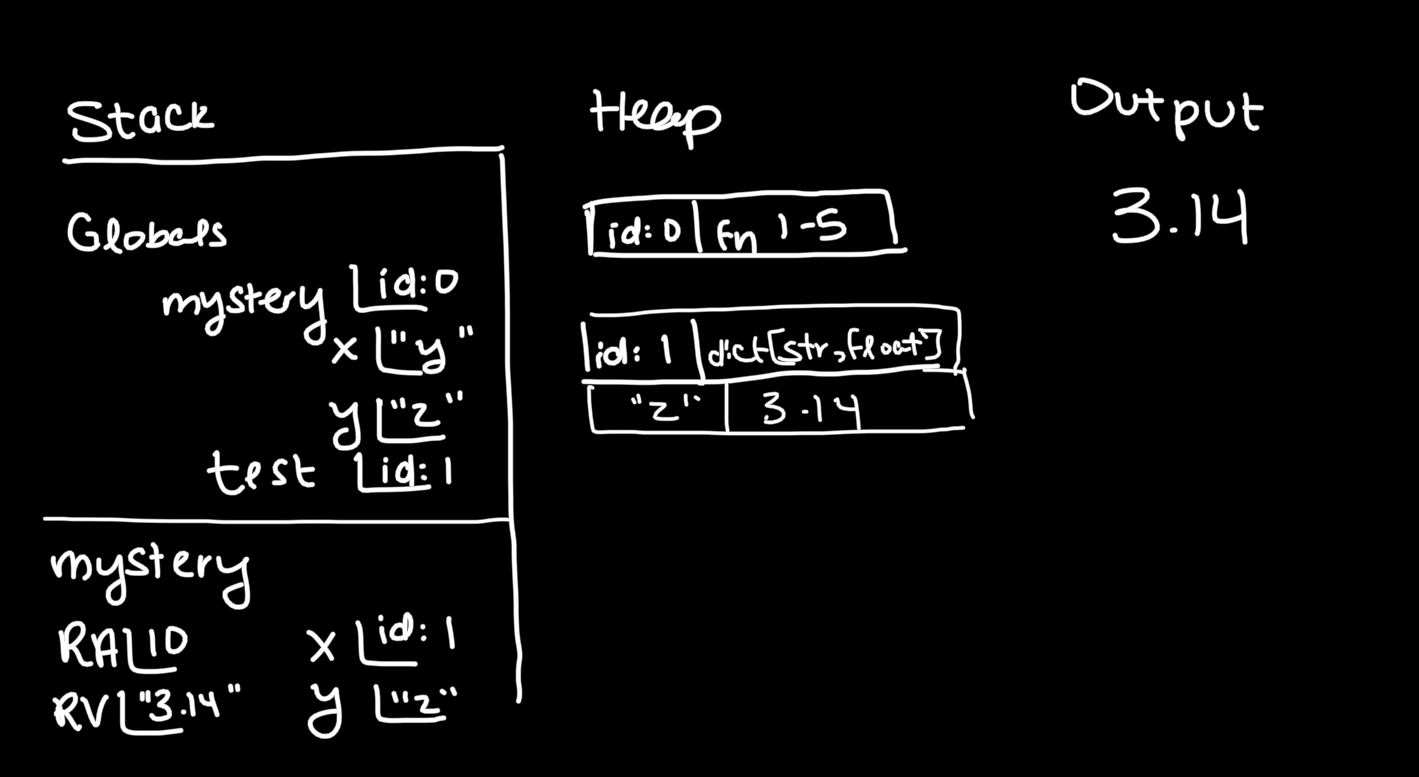 Stack
Globals
mystery id:0
x "y"
y "z"
test id:1
mystery
RA 10
RV "3.14"
x id:1
y "z"
Heap
id:0 fn 1-5
id:1 dict[str,float]
"z" 3.14
Output
3.14